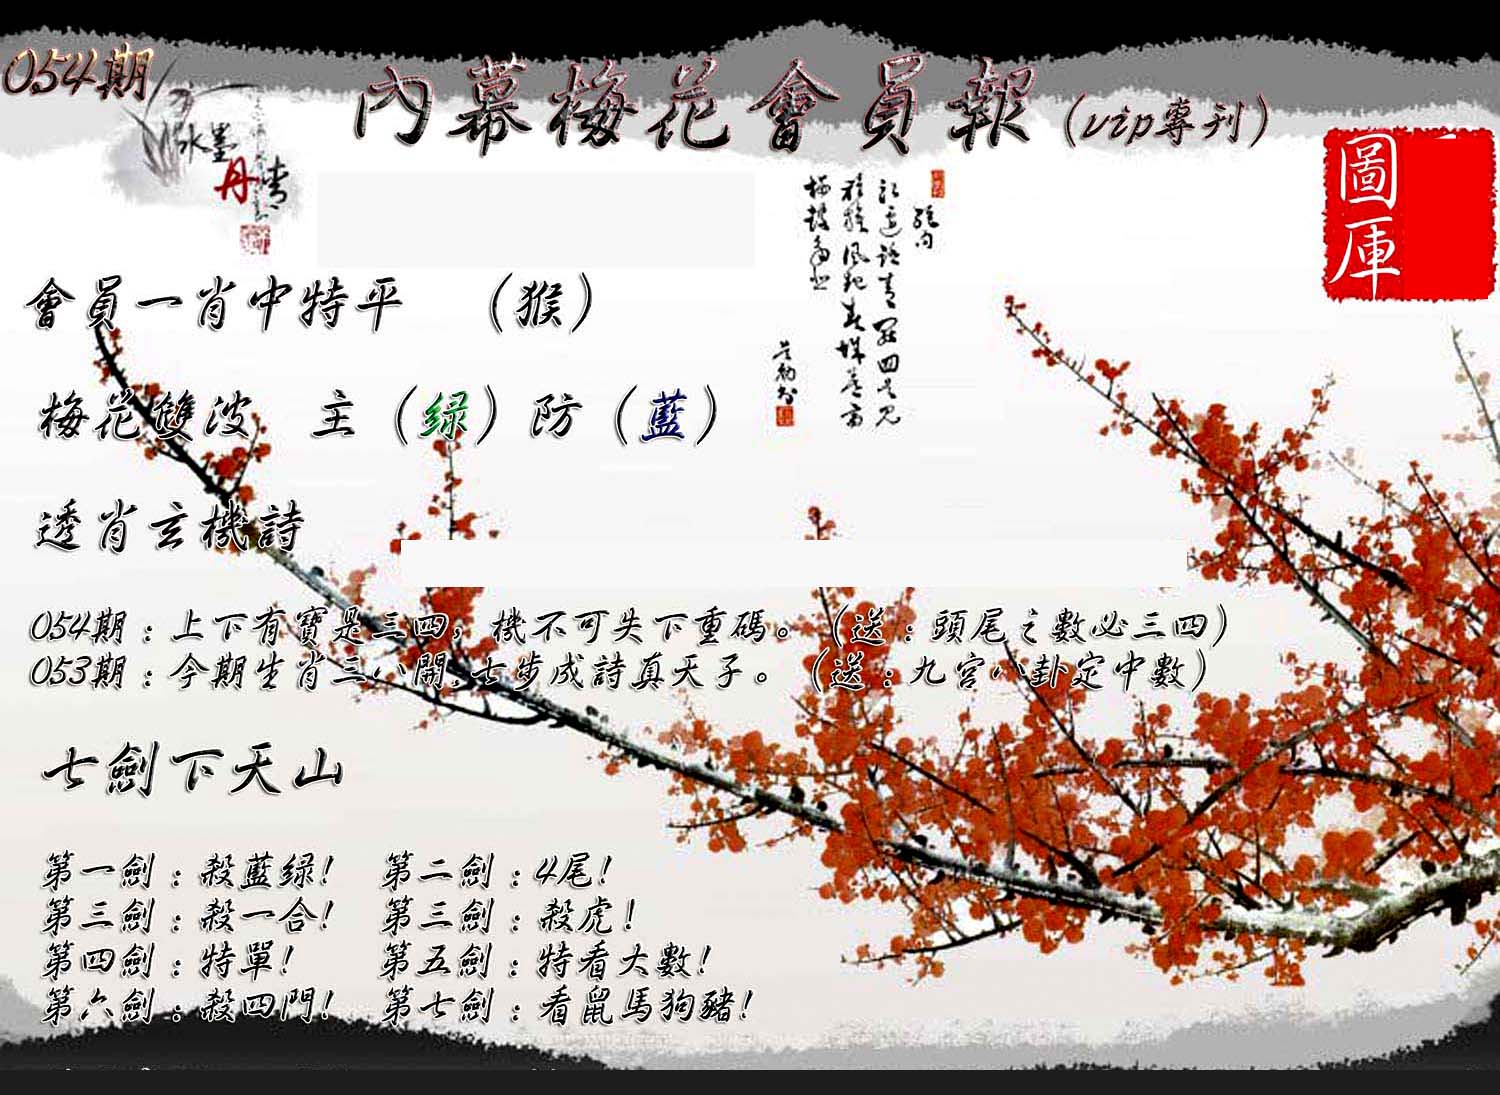 054期
內幕梅花會員報(vip專刊)
水墨
丹青
圖庫
會員一肖中特平 (猴)
梅花雙波 主(绿)防(藍)
透肖玄機詩
054期:上下有寶是三四,機不可失下重碼。(送:頭尾之數必三四)
053期:今期生肖三八開,七步成詩真天子。(送:九宮八卦定中數)
七劍下天山
第一劍:殺藍绿! 第二劍:4尾!
第三劍:殺一合! 第三劍:殺虎!
第四劍:特單! 第五劍:特看大數!
第六劍:殺四門! 第七劍:看鼠馬狗豬!